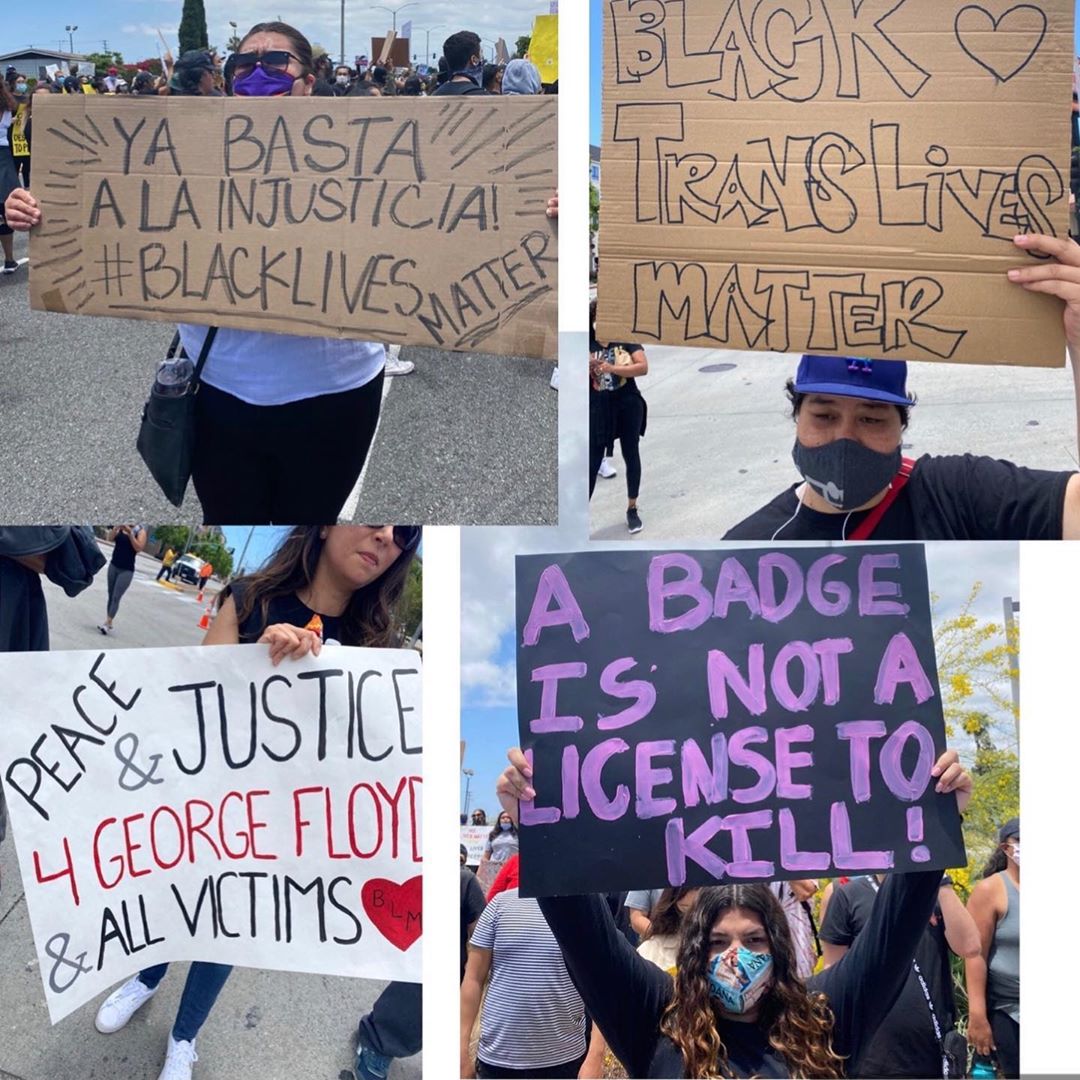 YA BASTA
A LA INJUSTICIA!
#BLACKLIVES
MATTER
BLACK
TRANS LiVES
MATTER
PEACE
& JUSTICE
4 GEORGE FLOYD
& ALL VICTIMS
BLM
A BADGE
IS NOT A
LICENSE TO
KILL!
adidas